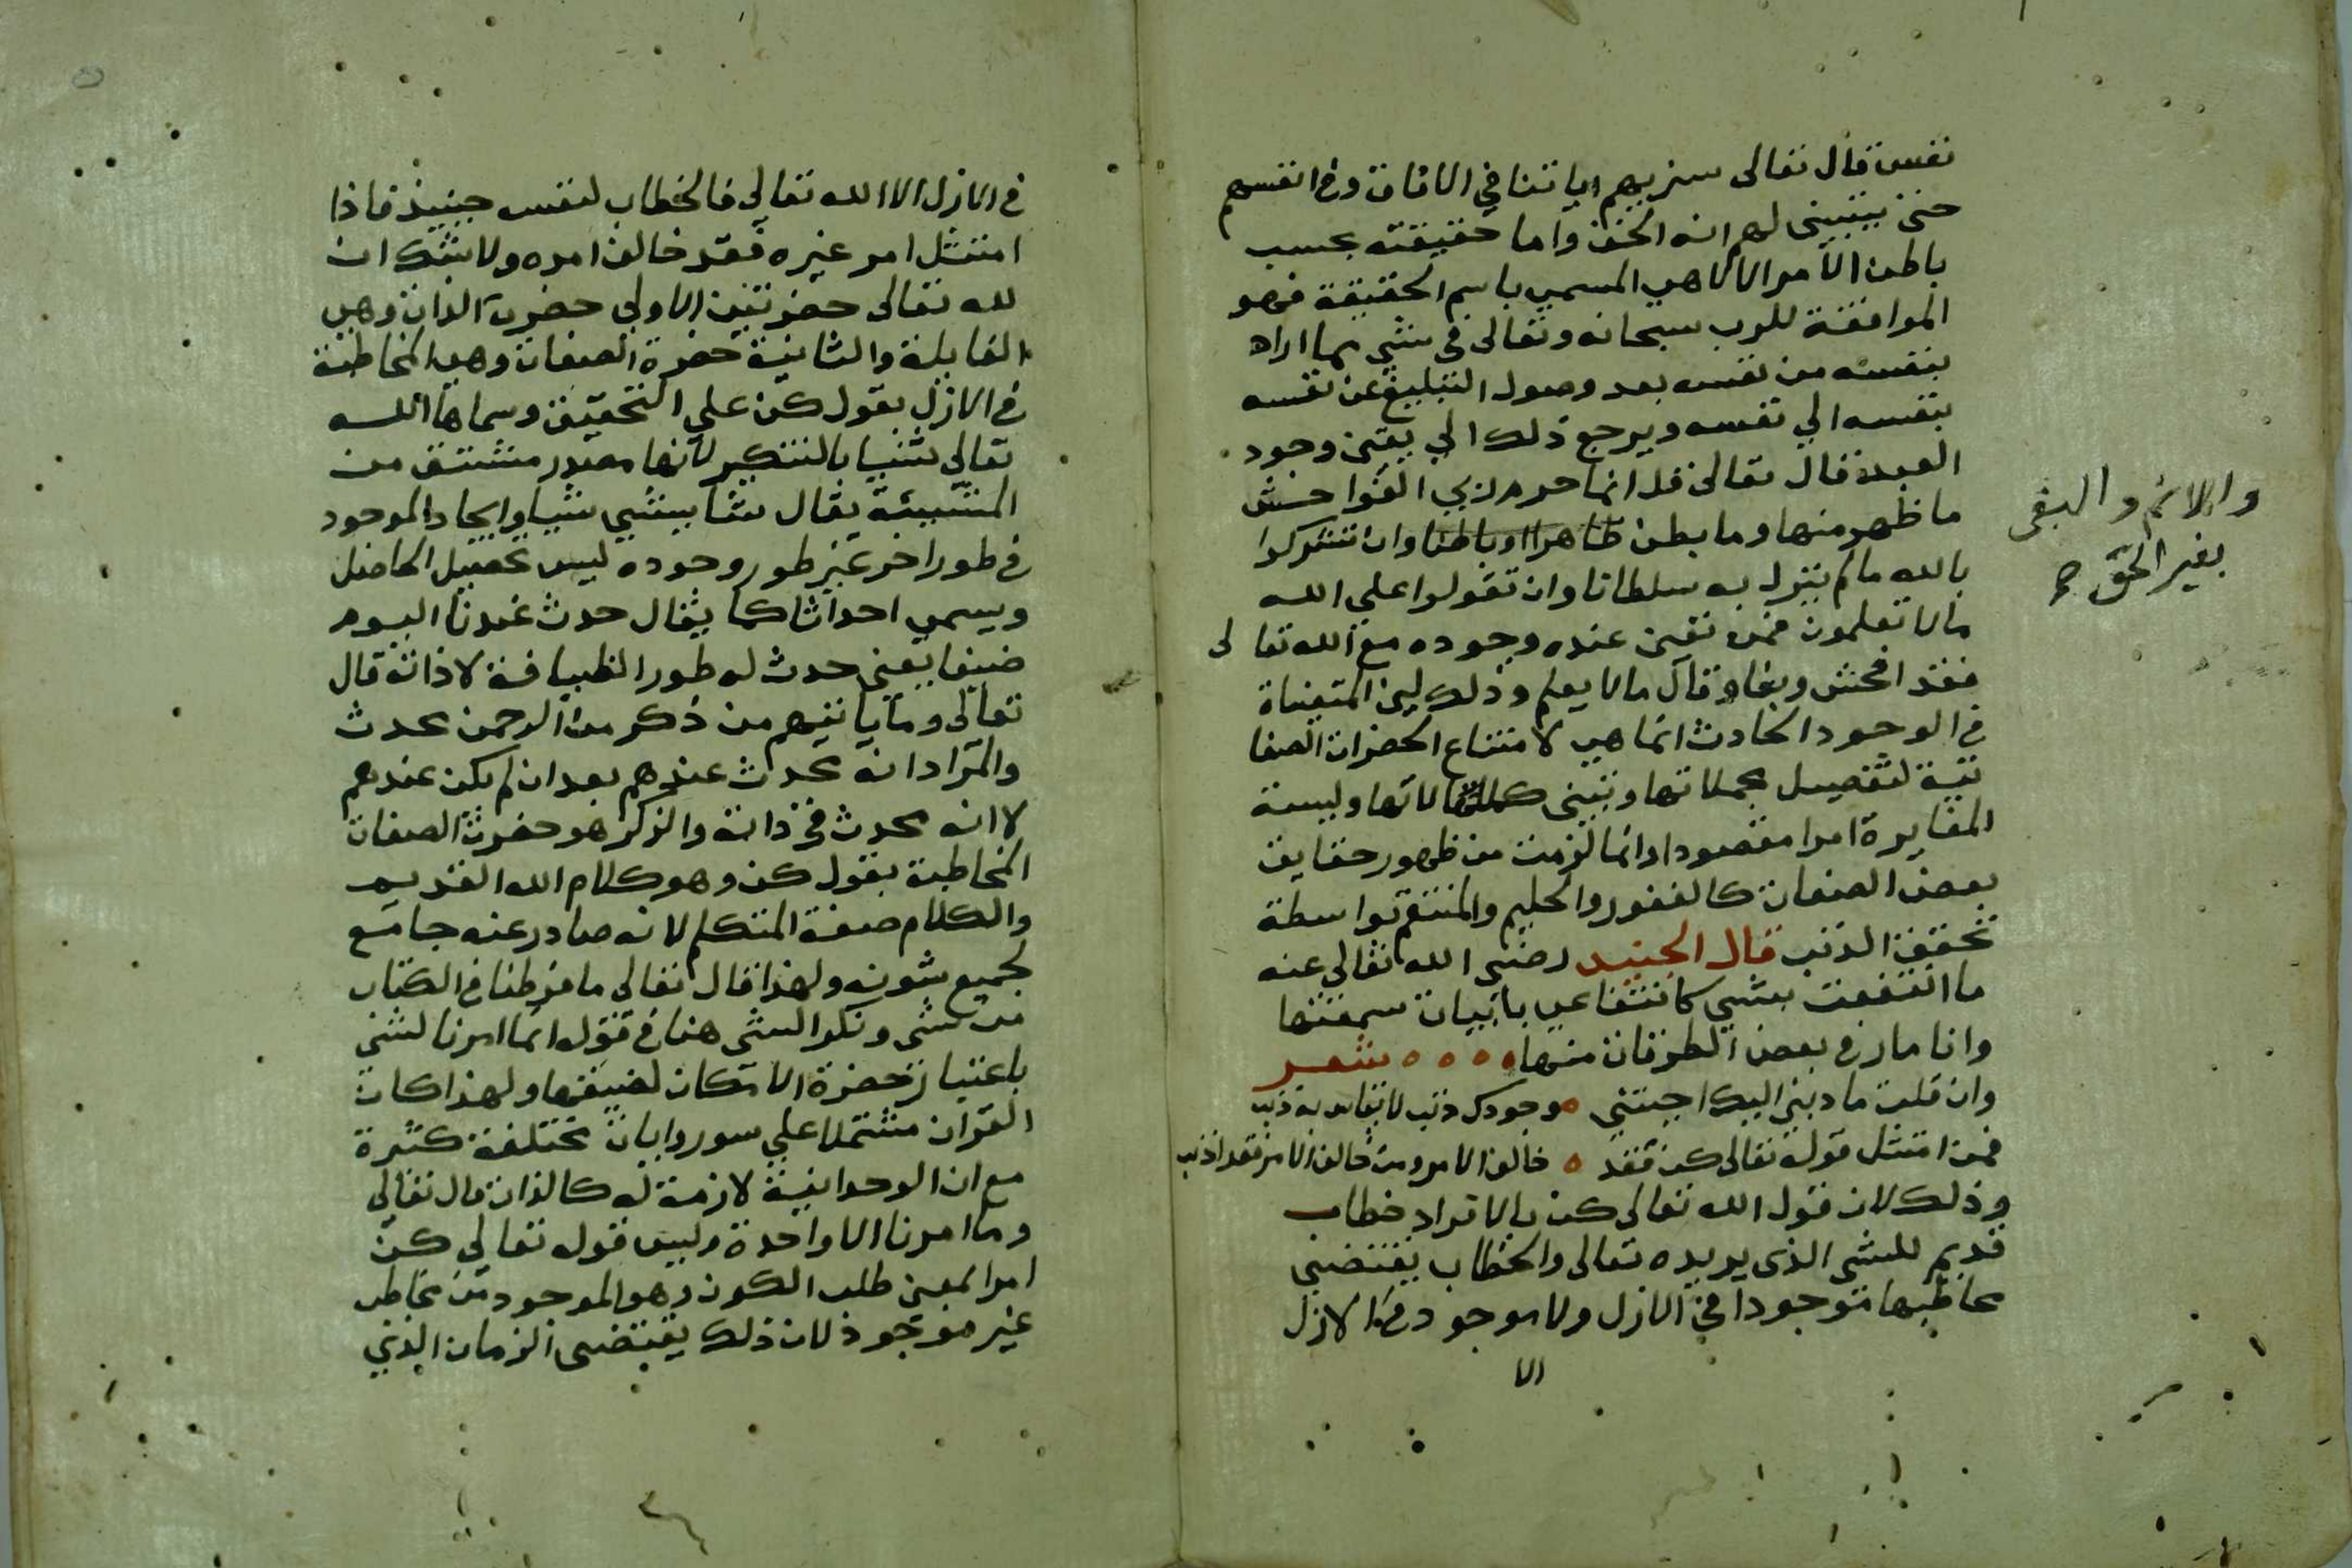 نفس قال تعالى سنريهم اياتنا في الافاق وفي انفسهم
حتى يتبين لهم انه الحق واما حقيقته بحسب
باطن الامر الالاهي المسمي باسم الحقيقة فهو
الموافقة للرب سبحانه وتعالى في شي مما اراه
بنفسه من نفسه بعد وصول التبليغ عن نفسه
بنفسه الي نفسه ويرجع ذلك الي يقين وجود
العبد قال تعالى قل انما حرم ربي الفواحش
ما ظهر منها وما بطن ظاهرا وباطنا وان تشركوا
والاثم والبغى
بغير الحق صح
بالله ما لم ينزل به سلطانا وان تقولوا علي الله
مالا تعلمون فمن تقين عنده وجوده مع الله تعالى
فقد افحش وبغا وقال مالا يعلم وذلك لين المتعناة
في الوجود الحادث انما هي لامتناع الحضرات الصفا
تية لتفصيل مجملاتها وتبين كمالاتها وليسة
المغايرة امرا مقصودا وانما لزمت من ظهور حقايق
بعض الصفات كالغفور والحليم والمنتقم بواسطة
تحقق الذنب قال الجنيد رضي الله تعالى عنه
ما انتفعت بشي كانتفاعي بابيات سمعتها
وانا مار في بعض الطرقات منها شعر
وان قلت ما دبني اليك اجبتني وجودك ذنب لا يقاس به ذنب
فمن امتثل قوله تعالى كن فقد خالف الامر ومن خالف الامر فقد اذنب
وذلك لان قول الله تعالى كن بالافراد خطاب
قديم للشي الذى يريده تعالى والخطاب يقتضي
مخاطبها موجودا في الازل ولا موجود في الازل
الا
في الازل الا الله تعالي فالخطاب لنفسه حينيذ فاذا
امتثل امر غيره فقد خالف امره ولا شك ان
لله تعالى حضرتين الاولي حضرت الذات وهي
القابلة والثانية حضرة الصفات وهي المخاطبة
في الازل بقول كن علي التحقيق وسماها الله
تعالي شيا بالتنكير لانها مصدر مشتق من
المشيئة يقال شا يشي شيا وايجاد الموجود
في طور اخر غير طور وجوده ليس تحصيل الحاصل
ويسمي احداثا كما يقال حدث عندنا اليوم
ضيفا يعني حدث له طور الظيافة لا ذاته قال
تعالى وما ياتيهم من ذكر من الرحمن محدث
والمراد انه محدث عندهم بعد ان لم يكن عندهم
لا انه محدث في ذاته والذكر هو حضرت الصفات
المخاطبة بقول كن وهو كلام الله القديم
والكلام صفة المتكلم لانه صادر عنه جامع
لجميع شونه ولهذا قال تعالي ما فرطنا في الكتاب
من شى ونكر الشى هنا في قوله انما امرنا لشى
باعتبار حضرة الامكان لضيقها ولهذا كان
القران مشتملا علي سور وايات مختلفة كثيرة
مع ان الوحدانية لازمة له كالذات قال تعالي
وما امرنا الا واحدة وليس قوله تعالي كن
امرا بمعنى طلب الكون وهو الموجود من مخاطب
غير موجود لان ذلك يقتضى الزمان الذي